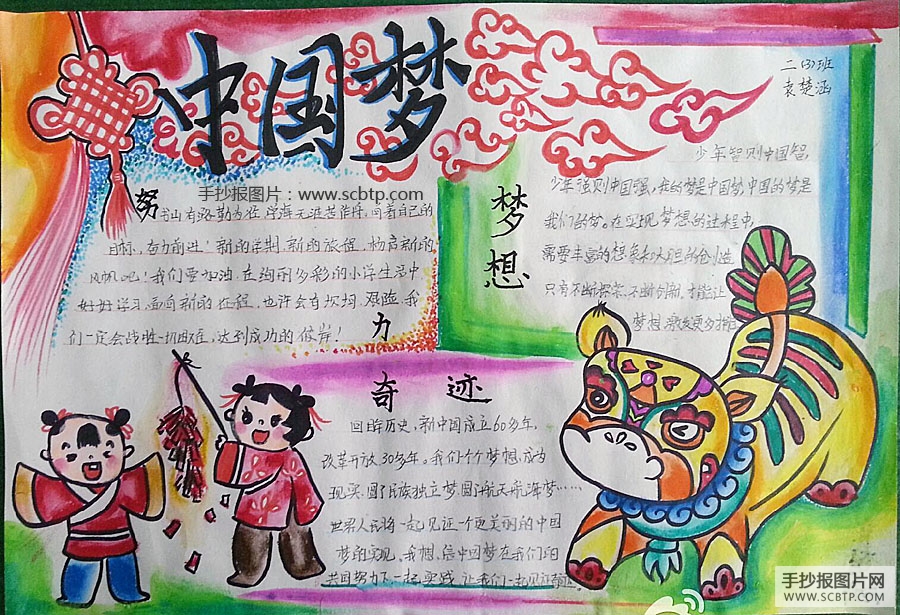 中国梦
二(3)班
袁楚涵
手抄报图片：www.scbtp.com
努
书山有路勤为径,学海无涯苦作舟,向着自己的
目标,奋力前进!新的学期,新的旅程,扬起新的
风帆吧!我们要加油,在绚丽多彩的小学生活中
好好学习,面向新的征程,也许会有坎坷、艰险,我
们一定会战胜一切困难,达到成功的彼岸!
力
梦想
少年智则中国智,
少年强则中国强,我的梦是中国梦,中国的梦是
我们的梦,在实现梦想的过程中,
需要丰富的想象和大胆的创造
只有不断探索、不断创新,才能让
梦想
奇迹
回眸历史,新中国成立60多年,
改革开放30多年。我们个个梦想成为
现实,圆了民族独立梦,圆了航天航海梦……
世界人民将一起见证一个更美丽的中国
梦的实现。我想,信中国梦在我们的
共同努力下一起实践,让我们一起见证
手抄报图片网
WWW.SCBTP.COM